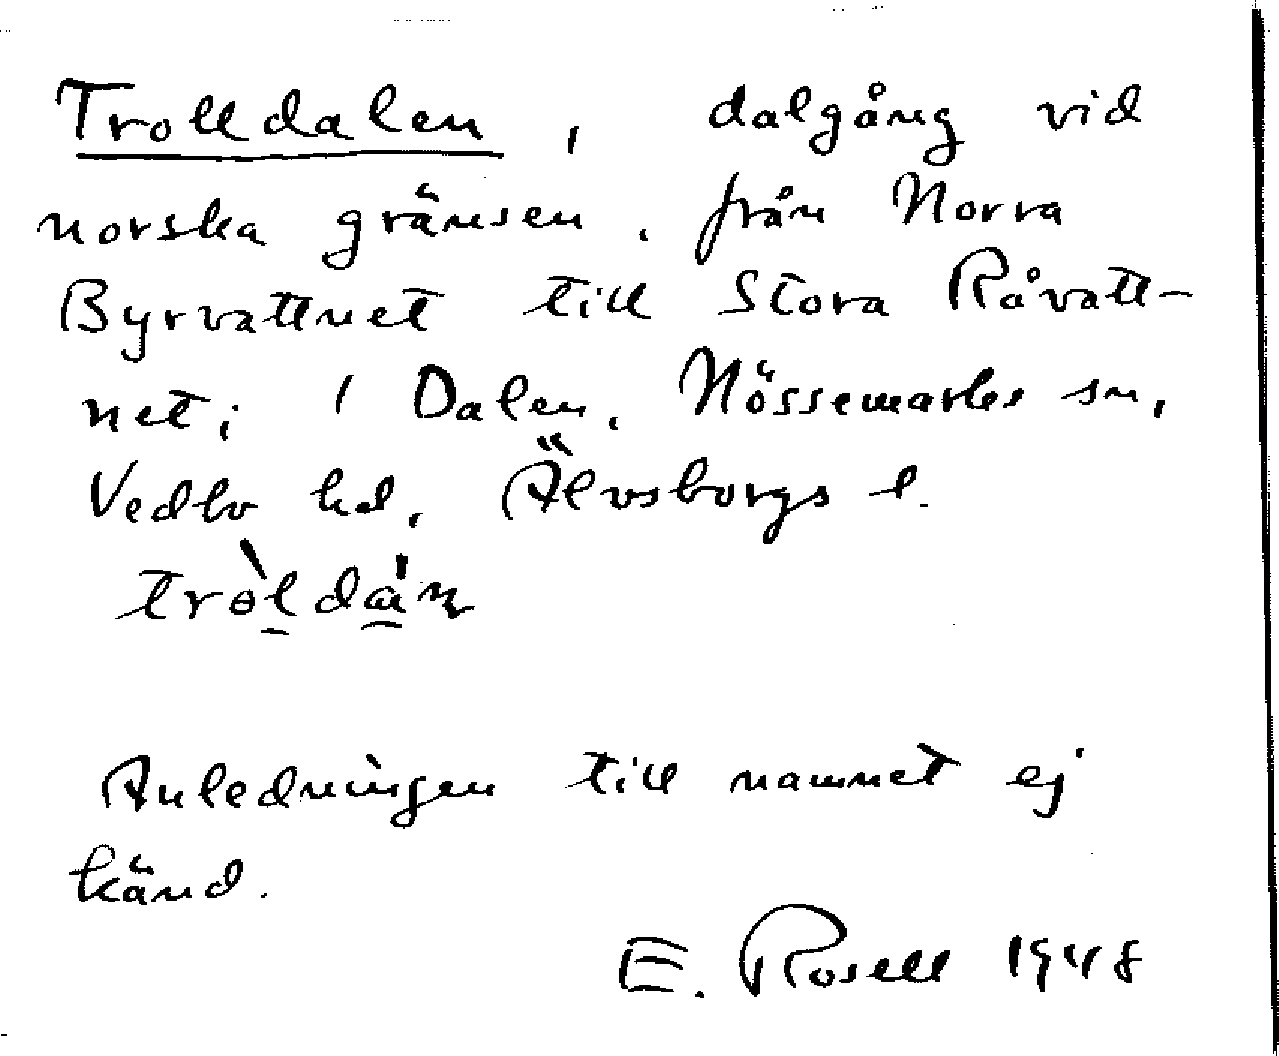 Trolldalen, dalgång vid
norska gränsen, från Norra
Byrvattnet till Stora Råvatt-
net; i Dalen, Nössemarks sn,
Vedbo hd, Älvsborgs l.
tròldán
Anledningen till namnet ej
känd.
E. Rosell 1948